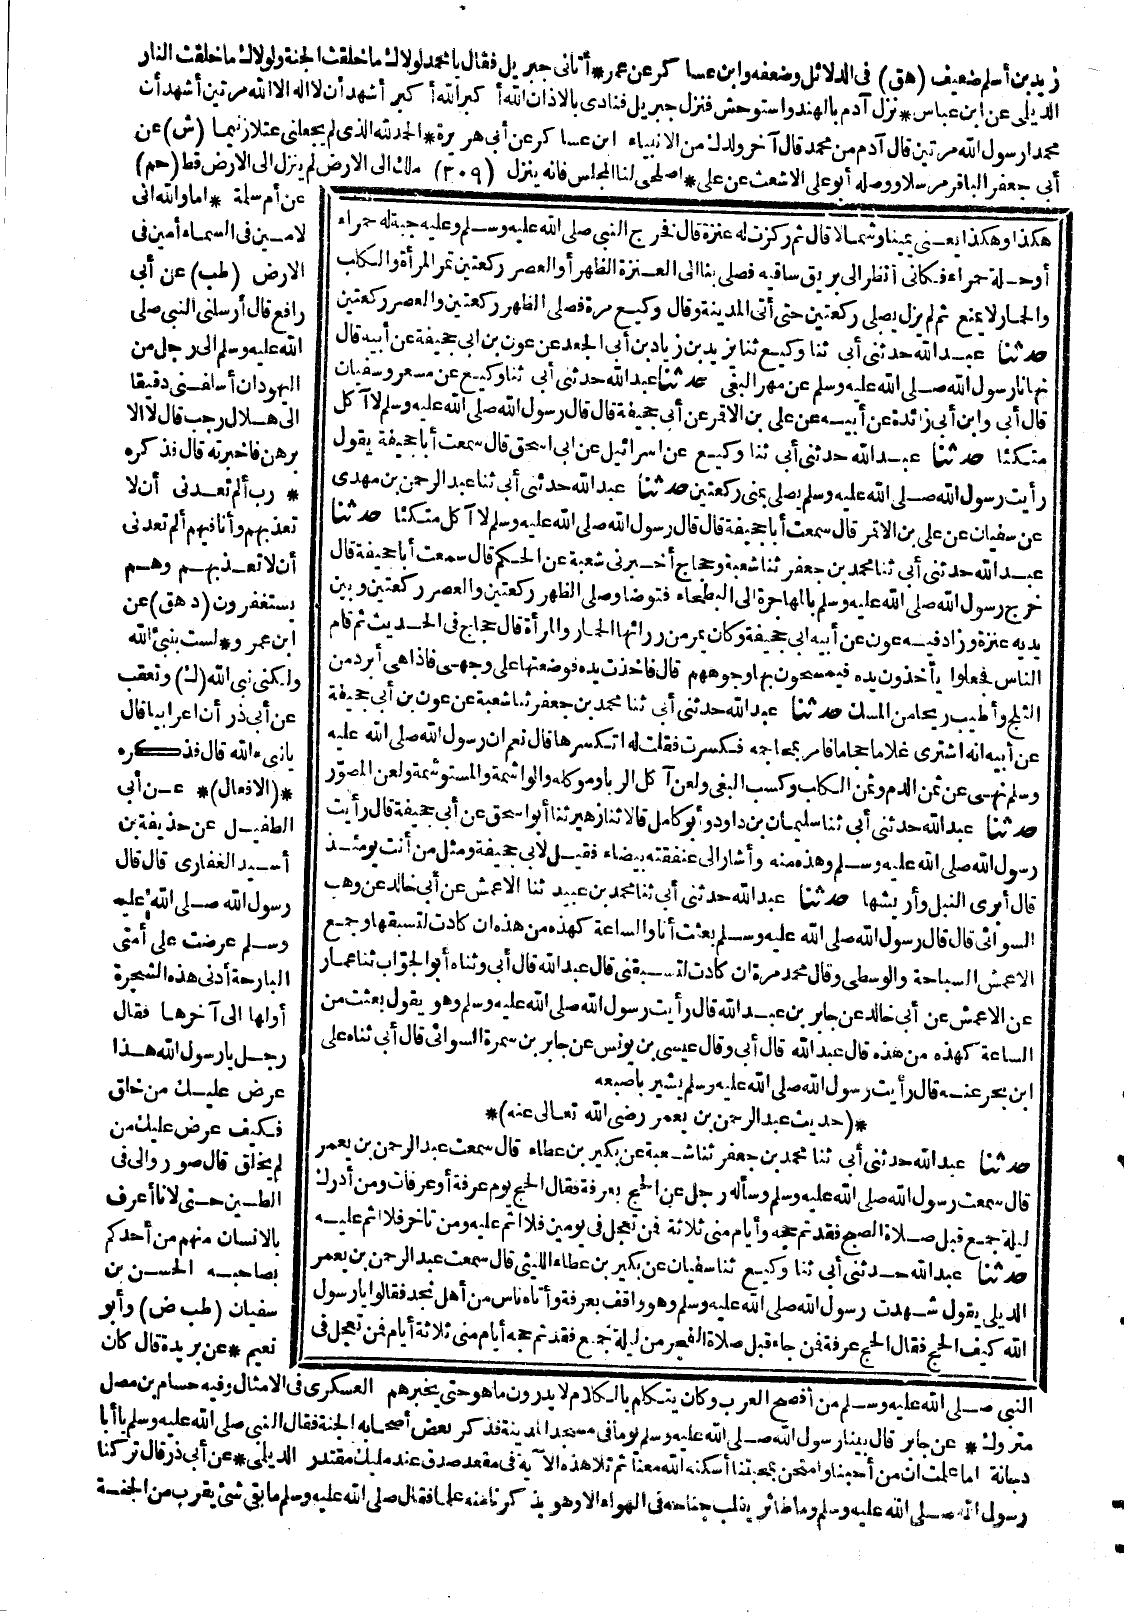 زيد بن أسلم ضعيف (هق) في الدلائل وضعفه وابن عساكر عن عمر * أتاني جبريل فقال يا محمد لولاك ما خلقت الجنة ولولاك ما خلقت النار
الديلمي عن ابن عباس * نزل آدم بالهند واستوحش فنزل جبريل فنادى بالاذان الله أكبر الله أكبر أشهد أن لا اله الا الله مرتين أشهد أن
محمدا رسول الله مرتين قال آدم من محمد قال آخر ولدك من الانبياء ابن عساكر عن أبي هريرة * الحمد لله الذي لم يجعلني عتلا زنيما (ش) عن
أبي جعفر الباقر مرسلا ووصله أبو على الاشعث عن على * اصلحي لنا المجلس فانه ينزل (٣٠٩) ملك الى الارض لم ينزل الى الارض قط (حم)
عن أم سلمة * اما والله اني
لامين في السماء أمين في
الارض (طب) عن أبي
رافع قال أرسلني النبي صلى
الله عليه وسلم الى رجل من
اليهود ان أسلفني دقيقا
الى هلال رجب قال لا الا
برهن فاخبرته قال فذكره
* رب ألم تعدني أن لا
تعذبهم وأنا فيهم ألم تعدني
أن لا تعذبهم وهم
يستغفرون (د هق) عن
ابن عمرو * لست بنبيء الله
ولكني نبي الله (ك) وتعقب
عن أبي ذر أن اعرابيا قال
يا نبيء الله قال فذكره
* (الافعال) * عن أبي
الطفيل عن حذيفة بن
أسيد الغفاري قال قال
رسول الله صلى الله عليه
وسلم عرضت على أمتي
البارحة أدنى هذه الشجرة
أولها الى آخرها فقال
رجل يا رسول الله هذا
عرض عليك من خلق
فكيف عرض عليك من
لم يخلق قال صوروا لي في
الطين حتى لانا أعرف
بالانسان منهم من أحدكم
بصاحبه الحسن بن
سفيان (طب ض) وأبو
نعيم * عن بريدة قال كان
هكذا وهكذا يعني يمينا وشمالا قال ثم ركزت له عنزة قال فخرج النبي صلى الله عليه وسلم وعليه جبة له حمراء
أو حلة حمراء فكأني أنظر الى بريق ساقيه فصلى بنا الى العنزة الظهر أو العصر ركعتين تمر المرأة والكلب
والحمار لا يمنع ثم لم يزل يصلي ركعتين حتى أتى المدينة وقال وكيع مرة فصلى الظهر ركعتين والعصر ركعتين
حدثنا عبد الله حدثني أبي ثنا وكيع ثنا يزيد بن زياد بن أبي الجعد عن عون بن أبي جحيفة عن أبيه قال
نهانا رسول الله صلى الله عليه وسلم عن مهر البغي حدثنا عبد الله حدثني أبي ثنا وكيع عن مسعر وسفيان
قال أبي وابن أبي زائدة عن أبيه عن على بن الاقمر عن أبي جحيفة قال قال رسول الله صلى الله عليه وسلم لا آكل
متكئا حدثنا عبد الله حدثني أبي ثنا وكيع عن اسرائيل عن ابي اسحق قال سمعت أبا جحيفة يقول
رأيت رسول الله صلى الله عليه وسلم يصلي بمنى ركعتين حدثنا عبد الله حدثني أبي ثنا عبد الرحمن بن مهدي
عن سفيان عن على بن الاقمر قال سمعت أبا جحيفة قال قال رسول الله صلى الله عليه وسلم لا آكل متكئا حدثنا
عبد الله حدثني أبي ثنا محمد بن جعفر ثنا شعبة وحجاج أخبرني شعبة عن الحكم قال سمعت أبا جحيفة قال
خرج رسول الله صلى الله عليه وسلم بالهاجرة الى البطحاء فتوضأ وصلى الظهر ركعتين والعصر ركعتين وبين
يديه عنزة وزاد فيه عون عن أبيه ابي جحيفة وكان يمر من ورائها الحمار والمرأة قال حجاج في الحديث ثم قام
الناس فجعلوا يأخذون يده فيمسحون بها وجوههم قال فاخذت يده فوضعتها على وجهي فاذا هي أبرد من
الثلج وأطيب ريحا من المسك حدثنا عبد الله حدثني أبي ثنا محمد بن جعفر ثنا شعبة عن عون بن أبي جحيفة
عن أبيه انه اشترى غلاما حجاما فامر بمحاجمه فكسرت فقلت له اتكسرها قال نعم ان رسول الله صلى الله عليه
وسلم نهى عن ثمن الدم وثمن الكلب وكسب البغي ولعن آكل الربا وموكله والواشمة والمستوشمة ولعن المصوّر
حدثنا عبد الله حدثني أبي ثنا سليمان بن داود وأبو كامل قالا ثنا زهير ثنا أبو اسحق عن أبي جحيفة قال رأيت
رسول الله صلى الله عليه وسلم وهذه منه وأشار الى عنفقته بيضاء فقيل لابي جحيفة ومثل من أنت يومئذ
قال أبري النبل وأريشها حدثنا عبد الله حدثني أبي ثنا محمد بن عبيد ثنا الاعمش عن أبي خالد عن وهب
السوائي قال قال رسول الله صلى الله عليه وسلم بعثت أنا والساعة كهذه من هذه ان كادت لتسبقها وجمع
الاعمش السباحة والوسطى وقال محمد مرة ان كادت لتسبقني قال عبد الله قال أبي وثناه أبو الجوّاب ثنا عمار
عن الاعمش عن أبي خالد عن جابر بن عبد الله قال رأيت رسول الله صلى الله عليه وسلم وهو يقول بعثت من
الساعة كهذه من هذه قال عبد الله قال أبي وقال عيسى بن يونس عن جابر بن سمرة السوائي قال أبي ثناه على
ابن بحر عنه قال رأيت رسول الله صلى الله عليه وسلم يشير باصبعه
* (حديث عبد الرحمن بن يعمر رضي الله تعالى عنه) *
حدثنا عبد الله حدثني أبي ثنا محمد بن جعفر ثنا شعبة عن بكير بن عطاء قال سمعت عبد الرحمن بن يعمر
قال سمعت رسول الله صلى الله عليه وسلم وسأله رجل عن الحج بعرفة فقال الحج يوم عرفة أو عرفات ومن أدرك
ليلة جمع قبل صلاة الصبح فقد تم حجه وأيام منى ثلاثة فمن تعجل في يومين فلا اثم عليه ومن تاخر فلا اثم عليه
حدثنا عبد الله حدثني أبي ثنا وكيع ثنا سفيان عن بكير بن عطاء الليثي قال سمعت عبد الرحمن بن يعمر
الديلي يقول شهدت رسول الله صلى الله عليه وسلم وهو واقف بعرفة وأتاه ناس من أهل نجد فقالوا يا رسول
الله كيف الحج فقال الحج عرفة فمن جاء قبل صلاة الفجر من ليلة جمع فقد تم حجه أيام منى ثلاثة أيام فمن تعجل في
النبي صلى الله عليه وسلم من أفصح العرب وكان يتكلم بالكلام لا يدرون ما هو حتى يخبرهم العسكري في الامثال وفيه حسام بن مصك
متروك * عن جابر قال بينا رسول الله صلى الله عليه وسلم يوما في مسجد المدينة فذكر بعض أصحابه الجنة فقال النبي صلى الله عليه وسلم يا أبا
دجانة اما علمت ان من أحبنا وامتحن بمحبتنا أسكنه الله معنا ثم تلا هذه الآية في مقعد صدق عند مليك مقتدر الديلمي * عن أبي ذر قال تركنا
رسول الله صلى الله عليه وسلم وما طائر يقلب جناحيه في الهواء الا وهو يذكر لنا منه علما فقال صلى الله عليه وسلم ما بقي شيء يقرب من الجنة